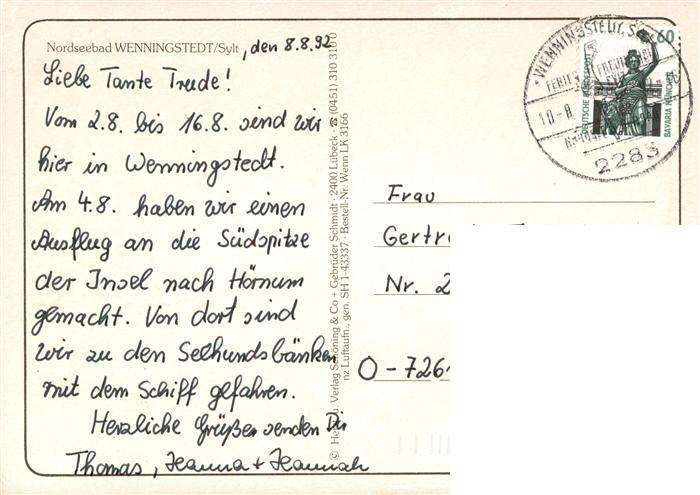 Nordseebad WENNINGSTEDT/Sylt , den 8.8.92
Liebe Tante Trude!
Vom 2.8. bis 16.8. sind wir
hier in Wenningstedt.
Am 4.8. haben wir einen
Ausflug an die Südspitze
der Insel nach Hörnum
gemacht. Von dort sind
wir zu den Seehundsbänken
mit dem Schiff gefahren.
Herzliche Grüße senden Dir
Thomas, Hanna + Hannah
Verlag Schöning & Co + Gebrüder Schmidt · 2400 Lübeck · ☎ (0451) 310 31 0
nz Luftaufn., gen. SH 1-43337 · Bestell-Nr. Wenn LK 3166
WENNINGSTEDT, S
2283
60
DEUTSCHE BUNDESPOST
BAVARIA MÜNCHEN
Frau
Gertr
Nr. 2
O-726